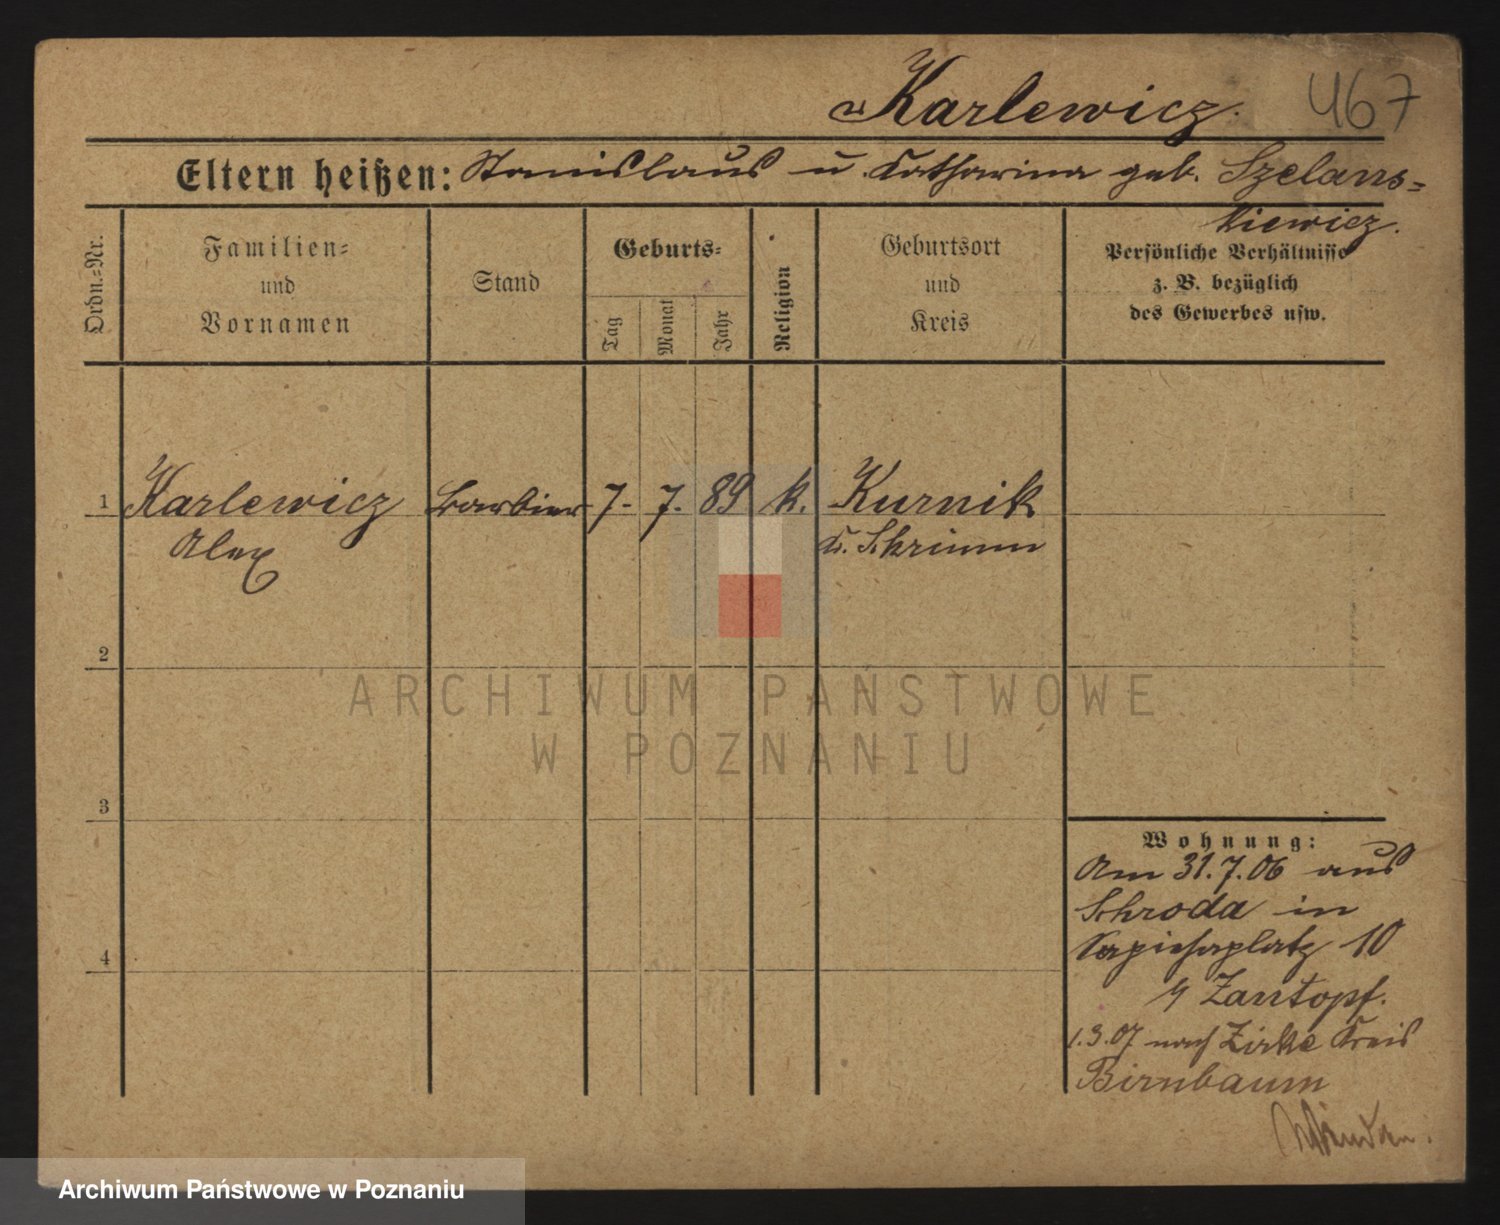 Karlewicz. 467
Eltern heißen: Stanislaus u. Katharina geb. Szelans=
kiewicz.
Ordn.=Nr.
Familien=
und
Vornamen
Stand
Geburts=
Tag
Monat
Jahr
Religion
Geburtsort
und
Kreis
Persönliche Verhältnisse
z. B. bezüglich
des Gewerbes usw.
1 Karlewicz Barbier 7. 7. 89 k. Kurnik
Alex Kr. Schrimm
2
3
4
Wohnung:
Am 31.7.06 aus
Schroda in
Sapiehaplatz 10
Zantopf.
1.3.07 nach Zirke Kreis
Birnbaum
ARCHIWUM PAŃSTWOWE
W POZNANIU
Archiwum Państwowe w Poznaniu